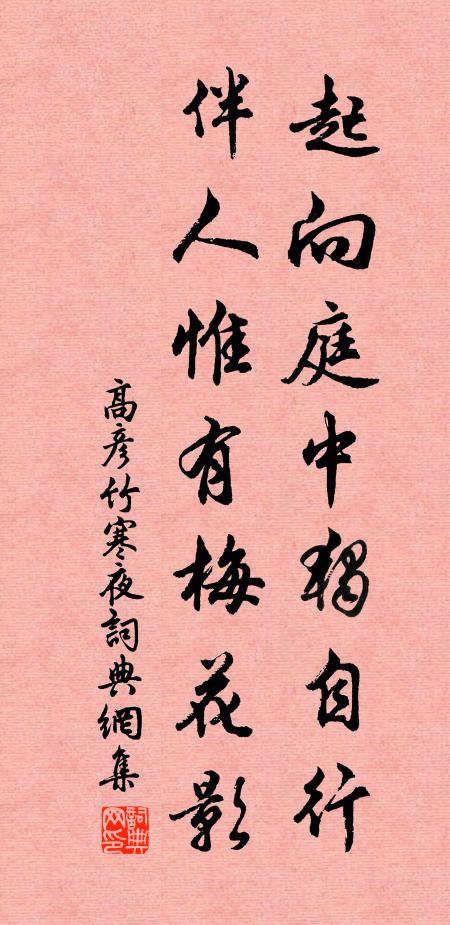 起向庭中獨自行
伴人惟有梅花影
高彥竹寒夜詞典網集
詞典网印